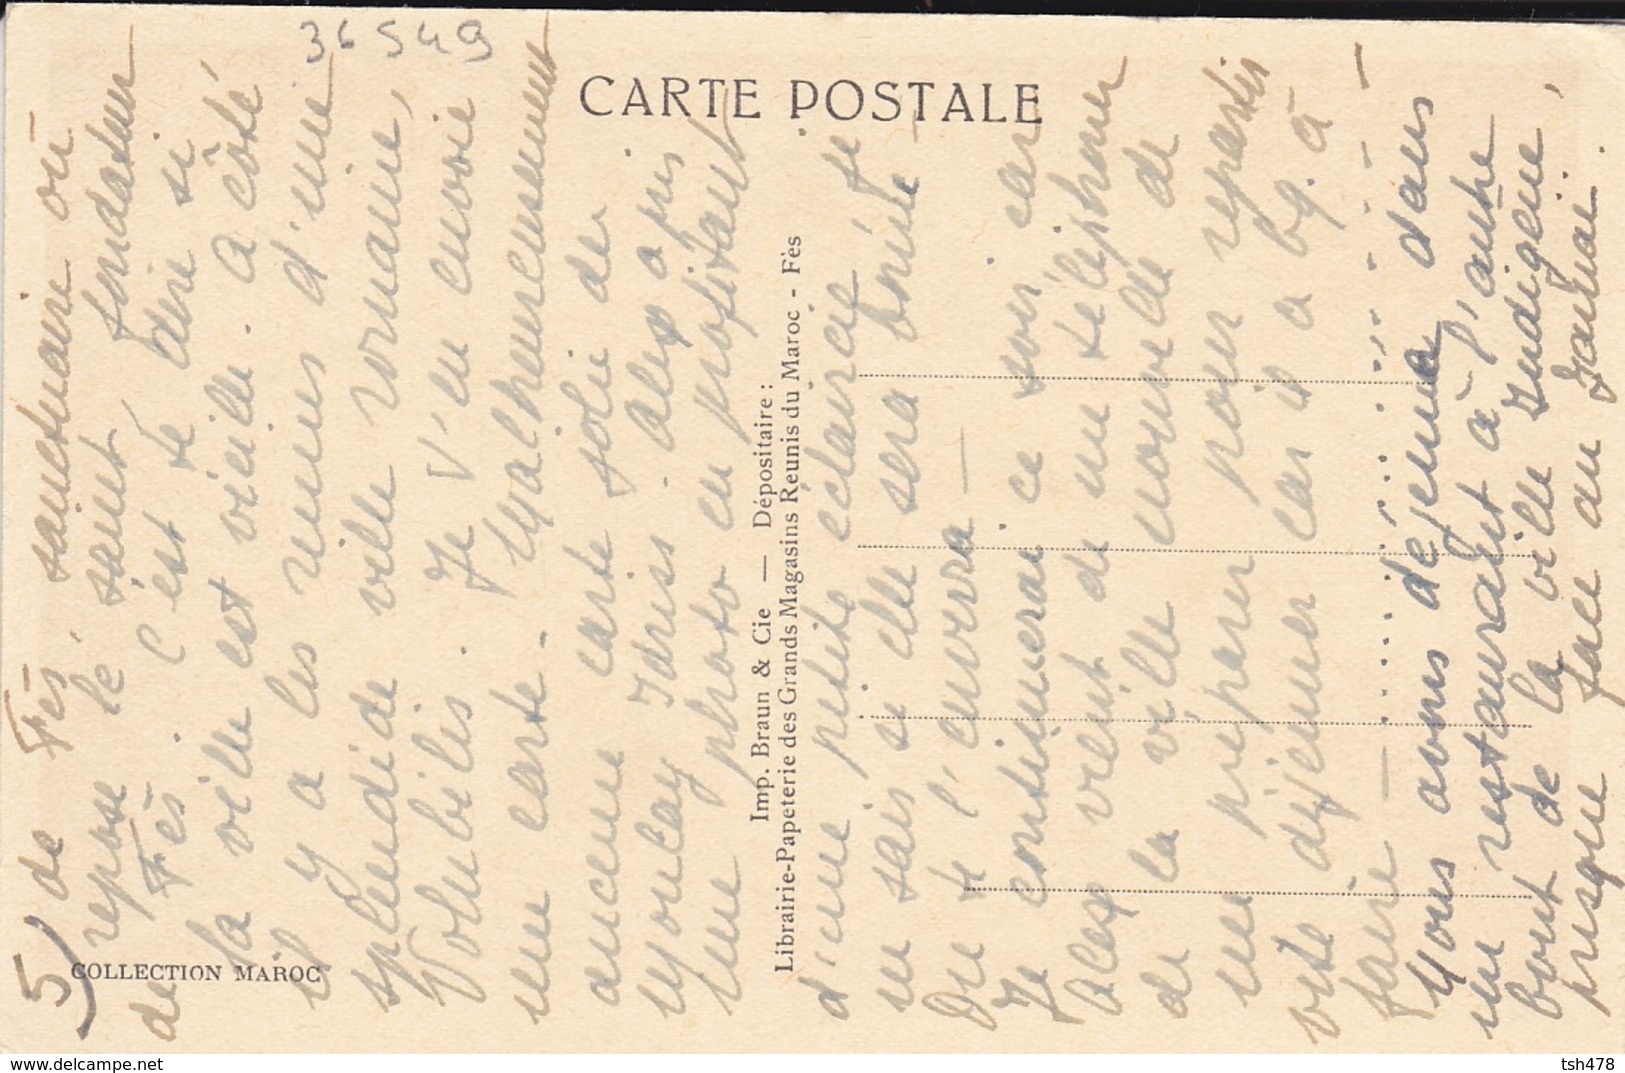 36549
CARTE POSTALE
Imp. Braun & Cie — Dépositaire :
Librairie-Papeterie des Grands Magasins Reunis du Maroc - Fès
COLLECTION MAROC
5) de Fès, sanctuaire où
repose le saint fondateur
de Fès. C'est te dire si
la ville est vieille. A côté,
il y a les ruines d'une
splendide ville romaine,
Volubilis. Je t'en envoie
une carte. Malheureusement
aucune carte jolie de
Moulay Idriss. Alex a pris
une photo en profitant
d'une petite éclaircie je
ne sais si elle sera bonne -
On te l'enverra —
Je continuerai ce soir car
Alex vient de me téléphoner
de la ville nouvelle de
me préparer pour repartir
vite déjeuner car il a bq. à
faire —
Nous avons déjeuné dans
un restaurant à l'autre
bout de la ville Indigène,
presque face au
tsh478